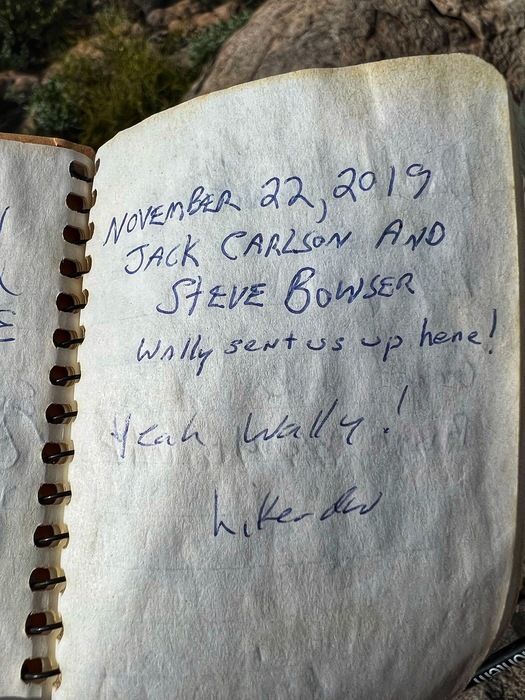 NOVEMBER 22, 2019
JACK CARLSON AND
STEVE BOWSER
Wally sent us up here!
Yeah Wally!